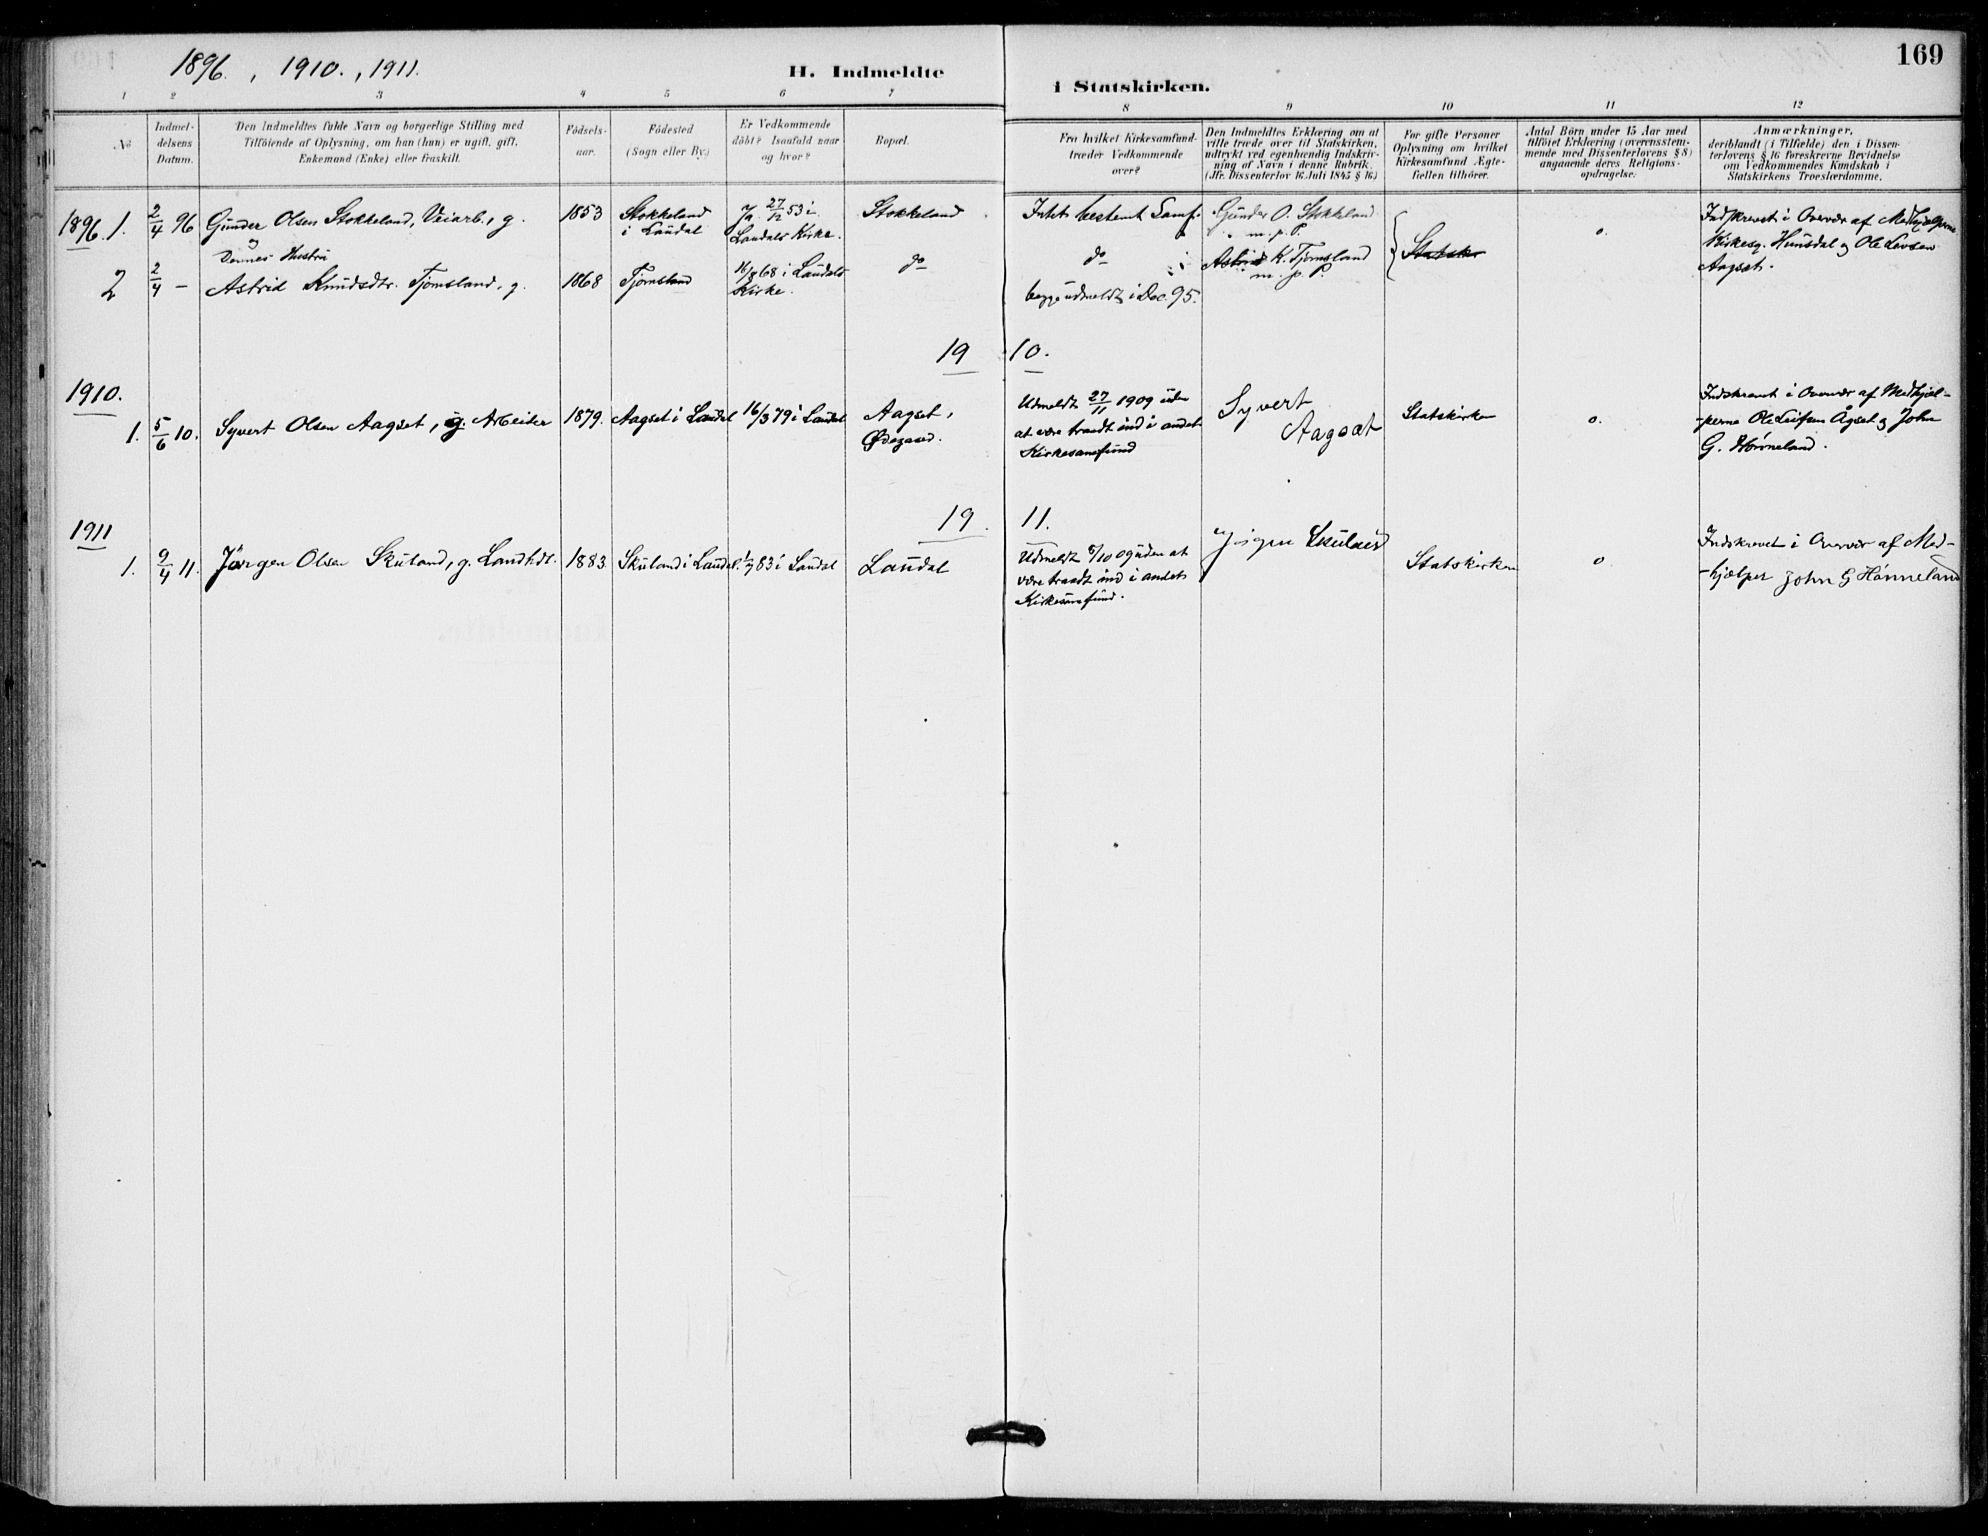 169
1896. , 1910. , 1911.
H. Indmeldte i Statskirken.
1 2 3 4 5 6 7 8 9 10 11 12
No
Indmel-
delsens
Datum.
Den Indmeldtes fulde Navn og borgerlige Stilling med
Tilföiende af Oplysning, om han (hun) er ugift, gift,
Enkemand (Enke) eller fraskilt.
Födsels-
aar.
Födested
(Sogn eller By.)
Er Vedkommende
döbt? Isaafald naar
og hvor?
Bopæl.
Fra hvilket Kirkesamfund
træder Vedkommende
over?
Den Indmeldtes Erklæring om at
ville træde over til Statskirken,
udtrykt ved egenhændig Indskriv-
ning af Navn i denne Rubrik.
(Jfr. Dissenterlov 16 Juli 1845 § 16)
For gifte Personer
Oplysning om hvilket
Kirkesamfund Ægte-
fællen tilhörer.
Antal Börn under 15 Aar med
tilföiet Erklæring (overensstem-
mende med Dissenterlovens § 8)
angaaende deres Religions-
opdragelse.
Anmærkninger,
deriblandt (i Tilfælde) den i Dissen-
terlovens § 16 foreskrevne Bevidnelse
om Vedkommendes Kundskab i
Statskirkens Troeslærdomme.
1896. 1.
2/4 96
Gunder Olsen Stokkeland, Veiarb., g.
1853
Stokkeland
i Laudal
Ja. 27/12 53 i
Laudals Kirke.
Stokkeland
Intet bestemt Samf.
Gunder O. Stokkeland
m. p. P.
Statskir
0.
Indskrevet i Overvær af Medhjælperne
Kirkesg. Hunsdal og Ole Levsen
Aagset.
2
2/4 –
Dennes Hustru
Astrid Knudsdtr. Tjomsland, g.
1868
Tjomsland
16/8 68 i Laudals
Kirke.
do
do
begge udmeldt i Dec. 95.
Astrid K. Tjomsland
m. p. P
19 10.
1910.
1.
5/6 10.
Syvert Olsen Aagset, g. Arbeider
1879.
Aagset i Laudal
16/3 79 i Laudal
Aagset,
Ødegaard.
Udmeldt 27/11 1909 uden
at være traadt ind i andet
Kirkesamfund
Syvert
Aagsæt
Statskirken
0.
Indskrevet i Overvær af Medhjæl-
perne Ole Leifsen Ågset og John
G. Hønneland.
19. 11.
1911
1.
9/4 11.
Jørgen Olsen Skuland, g. Landhdl.
1883
Skuland i Laudal.
1/7 83 i Laudal
Laudal
Udmeldt 8/10 09 uden at
være traadt ind i andet
Kirkesamfund.
Jørgen Skuland
Statskirken
0
Indskrevet i Overvær af Med-
-hjælper John G Hønneland